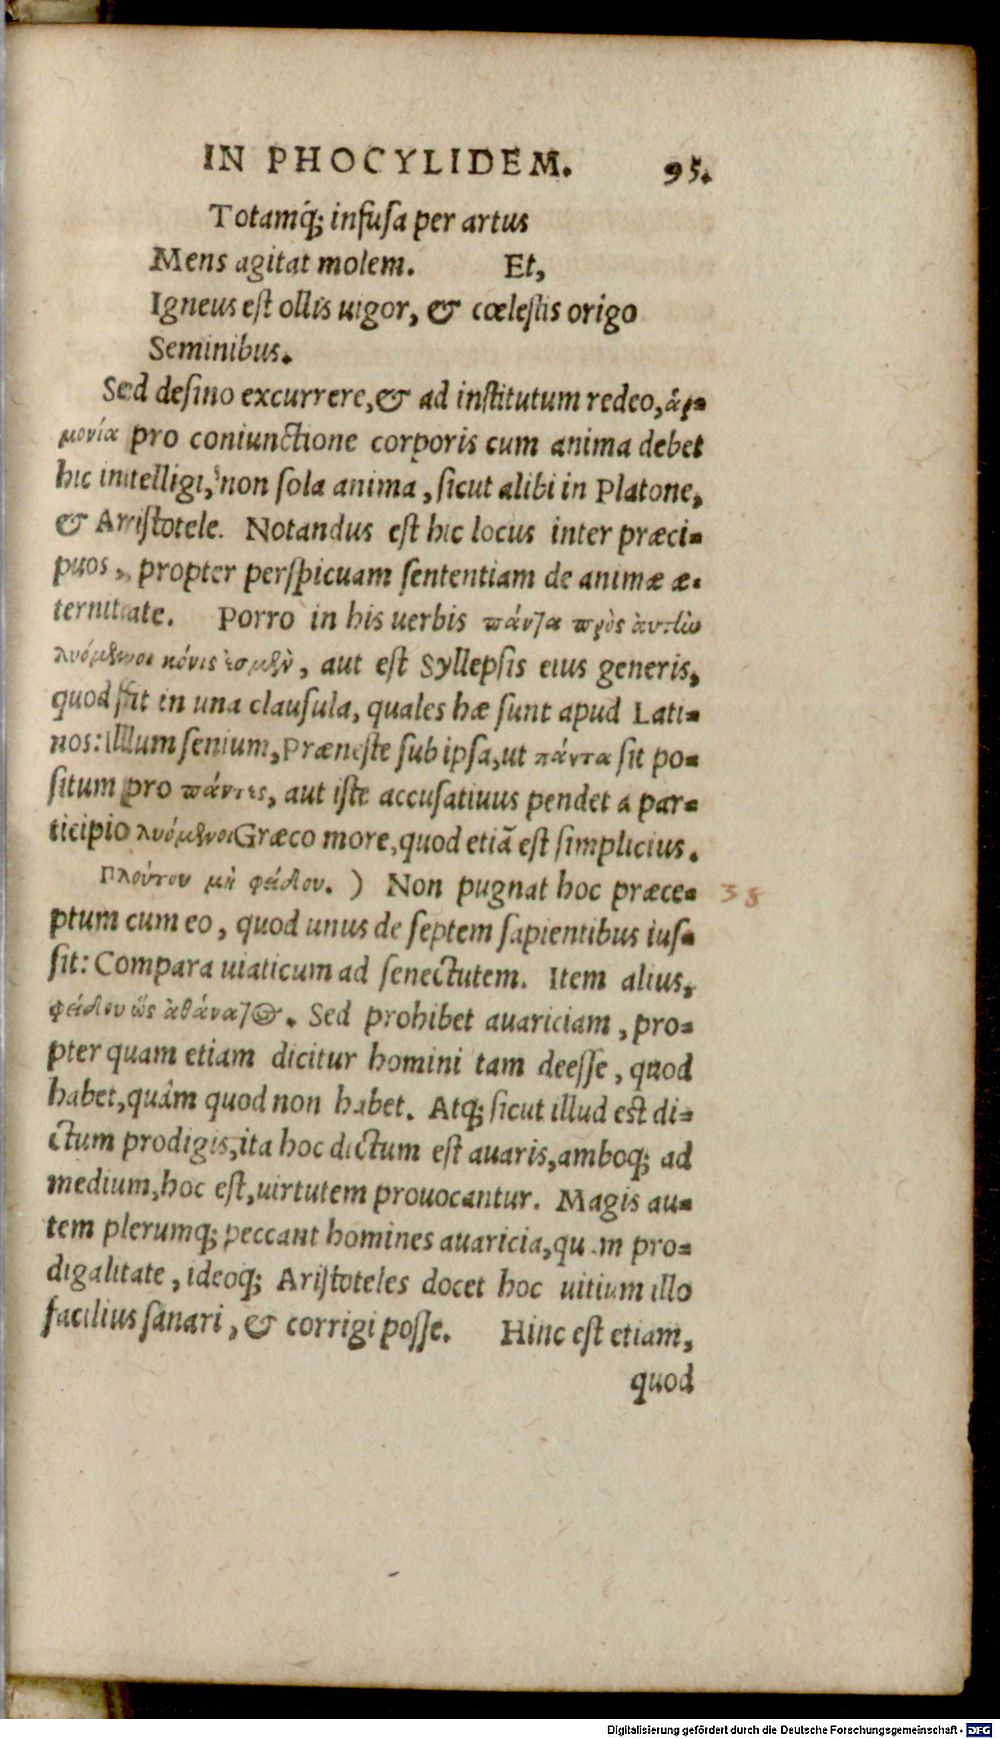 IN PHOCYLIDEM. 95.
Totamq́; infusa per artus
Mens agitat molem. Et,
Igneus est ollis uigor, & cœlestis origo
Seminibus.
Sed desino excurrere, & ad institutum redeo, ἁρ-
μονία pro coniunctione corporis cum anima debet
hic intelligi, non sola anima, sicut alibi in Platone,
& Aristotele. Notandus est hic locus inter præci-
puos, propter perspicuam sententiam de animæ æ-
ternitate. Porro in his uerbis πάντα πρὸς αὐτὴν
λυόμενοι κόνις ἐσμὲν, aut est Syllepsis eius generis,
quod fit in una clausula, quales hæ sunt apud Lati-
nos: Illum senium, Præneste sub ipsa, ut πάντα sit po-
situm pro πάντες, aut iste accusatiuus pendet a par-
ticipio λυόμενοι Græco more, quod etiã est simplicius.
Πλούτου μὴ φείδου. ) Non pugnat hoc præce- 38
ptum cum eo, quod unus de septem sapientibus ius-
sit: Compara uiaticum ad senectutem. Item alius,
φείδου ὡς ἀθάνατος. Sed prohibet auariciam, pro-
pter quam etiam dicitur homini tam deesse, quod
habet, quàm quod non habet. Atq; sicut illud est di-
ctum prodigis, ita hoc dictum est auaris, amboq; ad
medium, hoc est, uirtutem prouocantur. Magis au-
tem plerumq; peccant homines auaricia, qu m pro-
digalitate, ideoq; Aristoteles docet hoc uitium illo
facilius sanari, & corrigi posse. Hinc est etiam,
quod
Digitalisierung gefördert durch die Deutsche Forschungsgemeinschaft - DFG